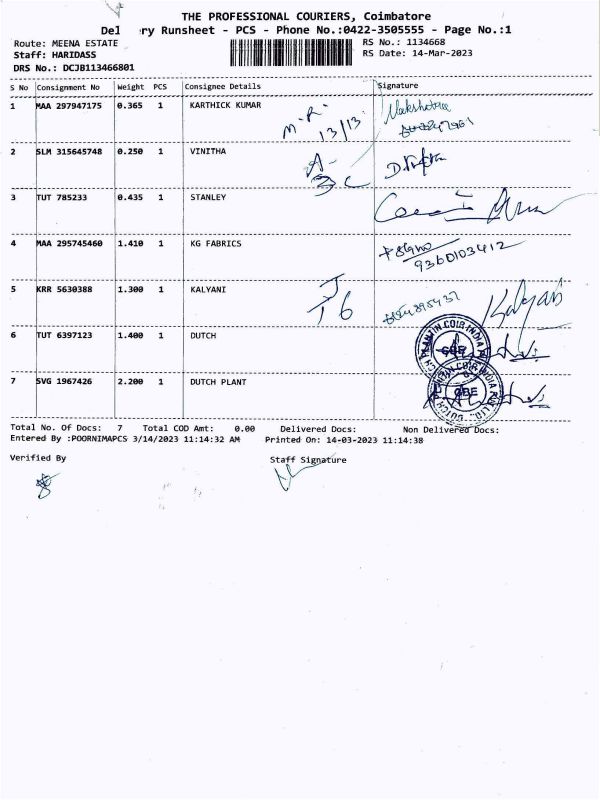 THE PROFESSIONAL COURIERS, Coimbatore
Del ry Runsheet - PCS - Phone No.:0422-3505555 - Page No.:1
Route: MEENA ESTATE
RS No.: 1134668
Staff: HARIDASS
RS Date: 14-Mar-2023
DRS No.: DCJB113466801
S No Consignment No Weight PCS Consignee Details Signature
1 MAA 297947175 0.365 1 KARTHICK KUMAR
M.R.
13/13
2 SLM 315645748 0.250 1 VINITHA
3 TUT 785233 0.435 1 STANLEY
4 MAA 295745460 1.410 1 KG FABRICS
9360103412
5 KRR 5630388 1.300 1 KALYANI Kalyani
6 TUT 6397123 1.400 1 DUTCH
7 SVG 1967426 2.200 1 DUTCH PLANT
CBE
Total No. Of Docs: 7 Total COD Amt: 0.00 Delivered Docs: Non Delivered Docs:
Entered By :POORNIMAPCS 3/14/2023 11:14:32 AM Printed On: 14-03-2023 11:14:38
Verified By Staff Signature